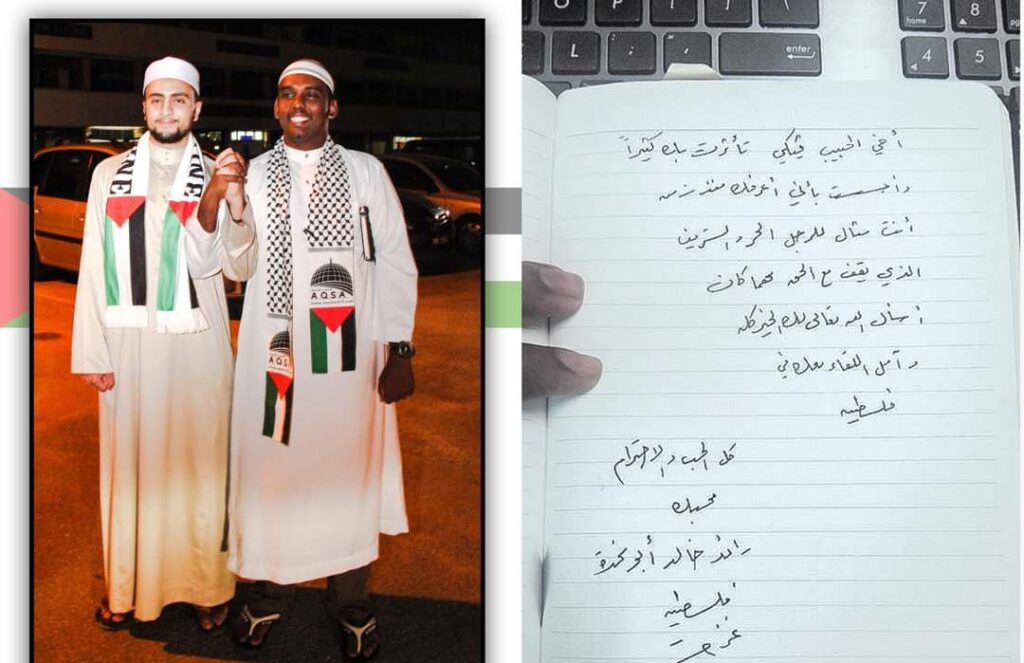 NE
NE
AQSA
AQS
O P { [ } ] | \
L : ; " '
enter
7
home
8
4
5
أخي الحبيب تأثرت بك كثيراً
وأحسست بأني أعرفك منذ زمن
أنت مثال للرجل الحر والشريف
الذي يقف مع الحق مهما كان
أسأل الله تعالى لك الخير كله
وآمل اللقاء بك في
فلسطين
كل الحب والاحترام
محبك
رائد خالد أبو
فلسطين
غزة